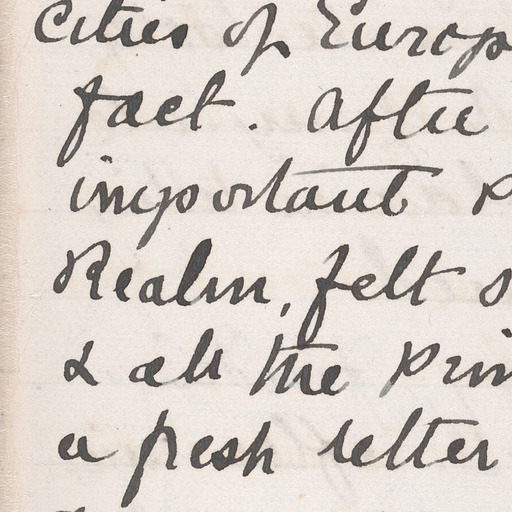 Cities of Europ
fact. After
important P
Realm, felt s
& all the Prin
a fresh letter